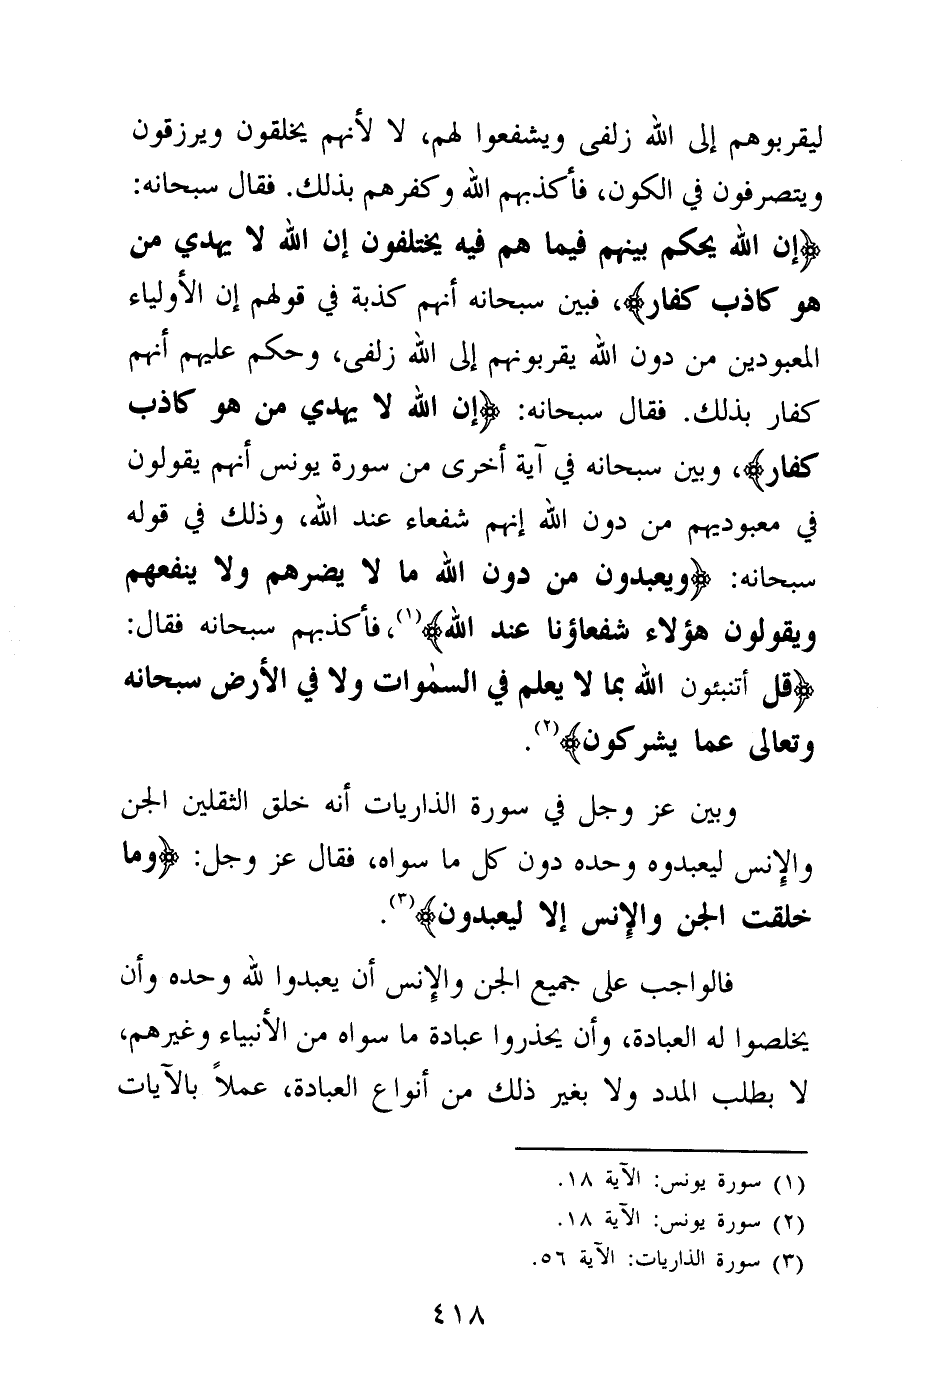 ليقربوهم إلى الله زلفى ويشفعوا لهم، لا لأنهم يخلقون ويرزقون
ويتصرفون في الكون، فأكذبهم الله وكفرهم بذلك. فقال سبحانه:
﴿إن الله يحكم بينهم فيما هم فيه يختلفون إن الله لا يهدي من
هو كاذب كفار﴾، فبين سبحانه أنهم كذبة في قولهم إن الأولياء
المعبودين من دون الله يقربونهم إلى الله زلفى، وحكم عليهم أنهم
كفار بذلك. فقال سبحانه: ﴿إن الله لا يهدي من هو كاذب
كفار﴾، وبين سبحانه في آية أخرى من سورة يونس أنهم يقولون
في معبوديهم من دون الله إنهم شفعاء عند الله، وذلك في قوله
سبحانه: ﴿ويعبدون من دون الله ما لا يضرهم ولا ينفعهم
ويقولون هؤلاء شفعاؤنا عند الله﴾(١)، فأكذبهم سبحانه فقال:
﴿قل أتنبئون الله بما لا يعلم في السمٰوات ولا في الأرض سبحانه
وتعالى عما يشركون﴾(٢).
وبين عز وجل في سورة الذاريات أنه خلق الثقلين الجن
والإنس ليعبدوه وحده دون كل ما سواه، فقال عز وجل: ﴿وما
خلقت الجن والإنس إلا ليعبدون﴾(٣).
فالواجب على جميع الجن والإنس أن يعبدوا لله وحده وأن
يخلصوا له العبادة، وأن يحذروا عبادة ما سواه من الأنبياء وغيرهم،
لا بطلب المدد ولا بغير ذلك من أنواع العبادة، عملاً بالآيات
(١) سورة يونس: الآية ١٨.
(٢) سورة يونس: الآية ١٨.
(٣) سورة الذاريات: الآية ٥٦.
٤١٨